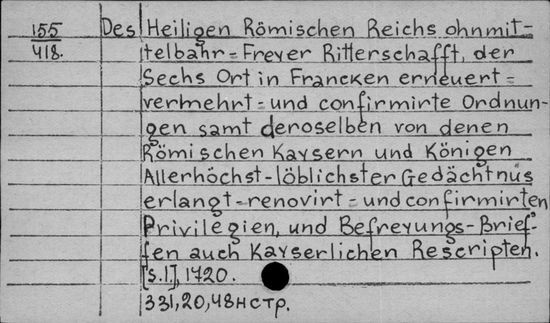 155
418.
Des Heiligen Römischen Reichs ohnmit-
telbahr=Freyer Ritterschafft, der
Sechs Ort in Francken erneuert=
vermehrt=und confirmirte Ordnun-
gen samt deroselben von denen
Römischen Kaysern und Königen
Allerhöchst-löblichster Gedächtnüs
erlangt=renovirt=und confirmirten
Privilegien, und Befreyungs-Brief-
fen auch Kayserlichen Rescripten.
[s.l.], 1720.
331,20,48нстр.